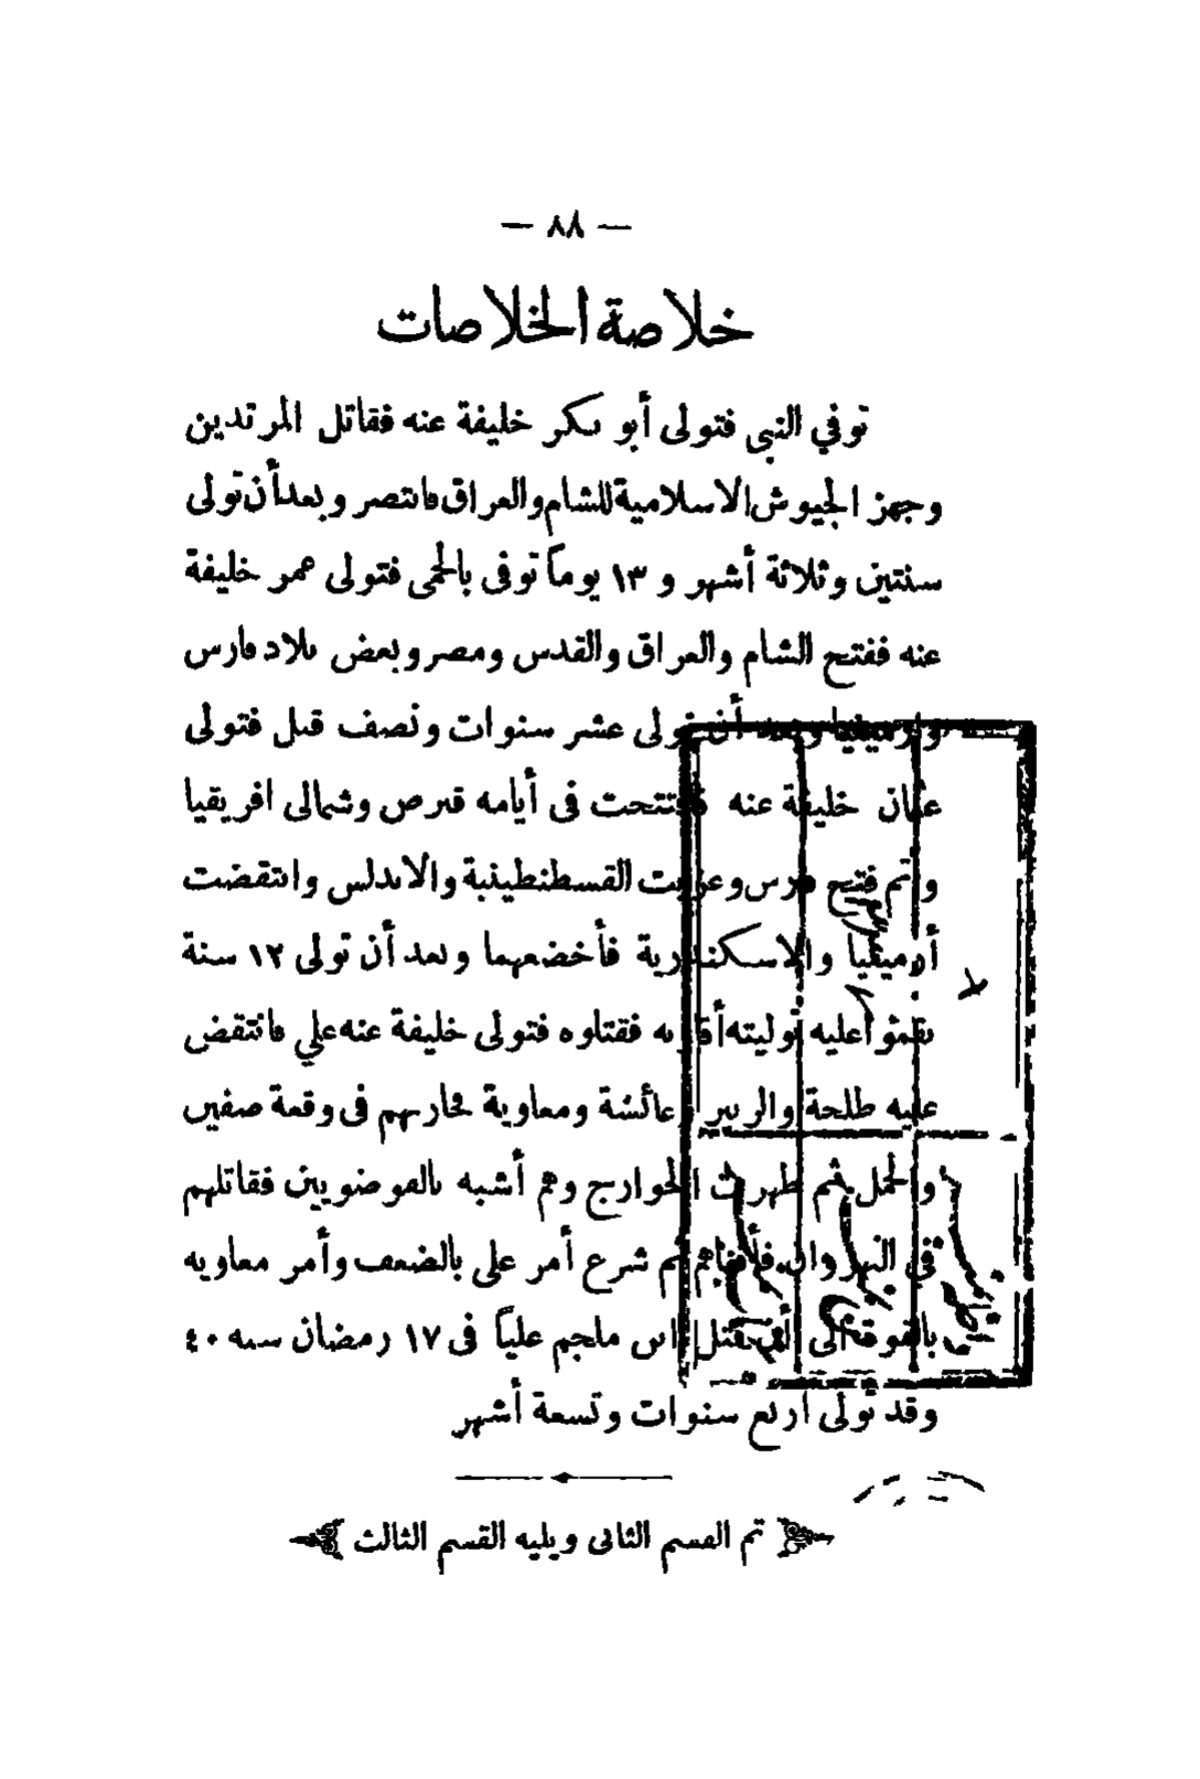 — ٨٨ —
خلاصة الخلاصات
توفي النبي فتولى أبو بكر خليفة عنه فقاتل المرتدين
وجهز الجيوش الاسلامية للشام والعراق فانتصر وبعد أن تولى
سنتين وثلاثة أشهر و ١٣ يوماً توفى بالحمى فتولى عمر خليفة
عنه ففتح الشام والعراق والقدس ومصر وبعض بلاد فارس
وارمينيا وبعد أن تولى عشر سنوات ونصف قتل فتولى
عثمان خليفة عنه فافتتحت فى أيامه قبرص وشمالى افريقيا
وتم فتح فارس وغزيت القسطنطينية والاندلس وانتقضت
أرمينيا والاسكندرية فأخضعهما وبعد أن تولى ١٢ سنة
نقموا عليه توليته أقاربه فقتلوه فتولى خليفة عنه علي فانتقض
عليه طلحة والزبير وعائشة ومعاوية فحاربهم فى وقعة صفين
والجمل ثم ظهرت الخوارج وهم أشبه بالفوضويين فقاتلهم
فى النهروان فأفناهم ثم شرع أمر على بالضعف وأمر معاويه
بالقوة الى أن قتل ابن ملجم علياً فى ١٧ رمضان سنه ٤٠
وقد تولى اربع سنوات وتسعة أشهر
تم القسم الثانى ويليه القسم الثالث